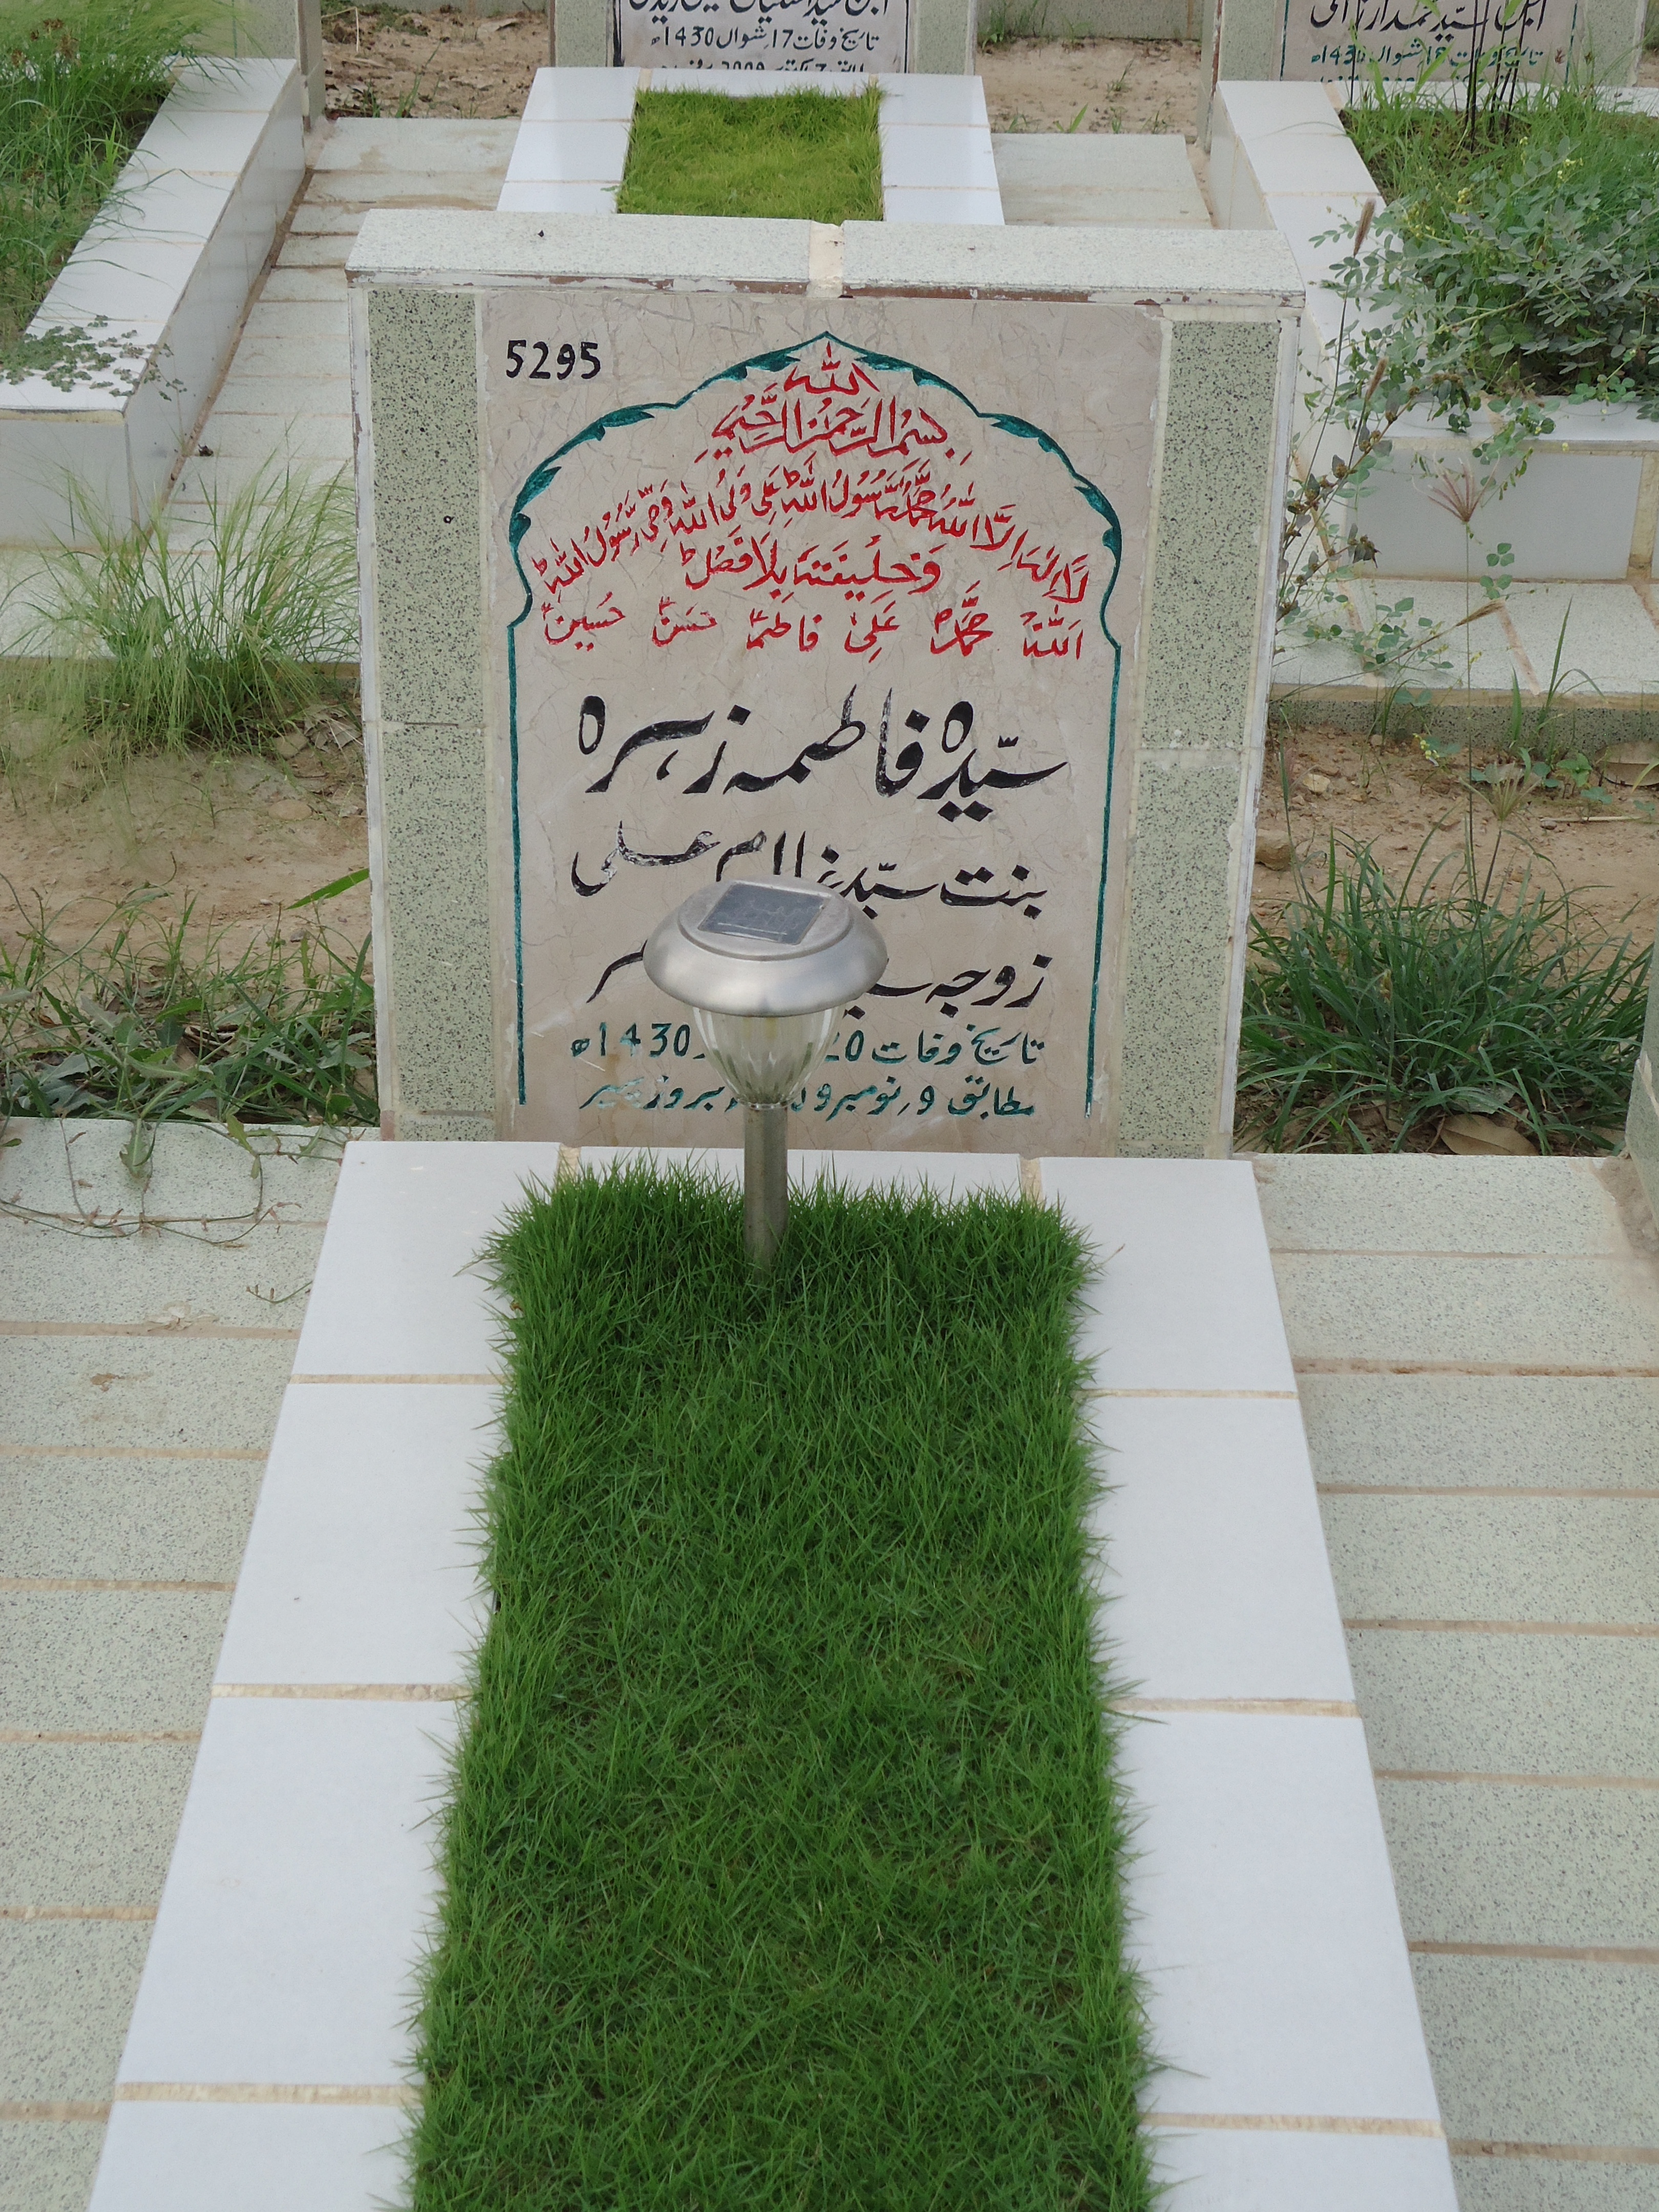 تاریخ وفات 17 شوال 1430ھ
5295
بِسْمِ اللہ الرَّحْمٰنِ الرَّحِیْمِ
لَا اِلٰہَ اِلَّا اللہُ مُحَمَّدٌ رَّسُوْلُ اللہِ عَلِیٌ وَلِیُ اللہِ وَصِیُ رَسُوْلُ اللہِ
وَخَلِیْفَتَہٗ بِلَا فَصْلٍ
اَللہُ مُحَمَّدؐ عَلِیؑ فاطمہؑ حَسنؑ حُسینؑ
سیّدہ فاطمہ زہرہ
بنت سیّد غلام علی
زوجہ
تاریخ وفات 20 1430ھ
مطابق ۹ نومبر بروز پیر